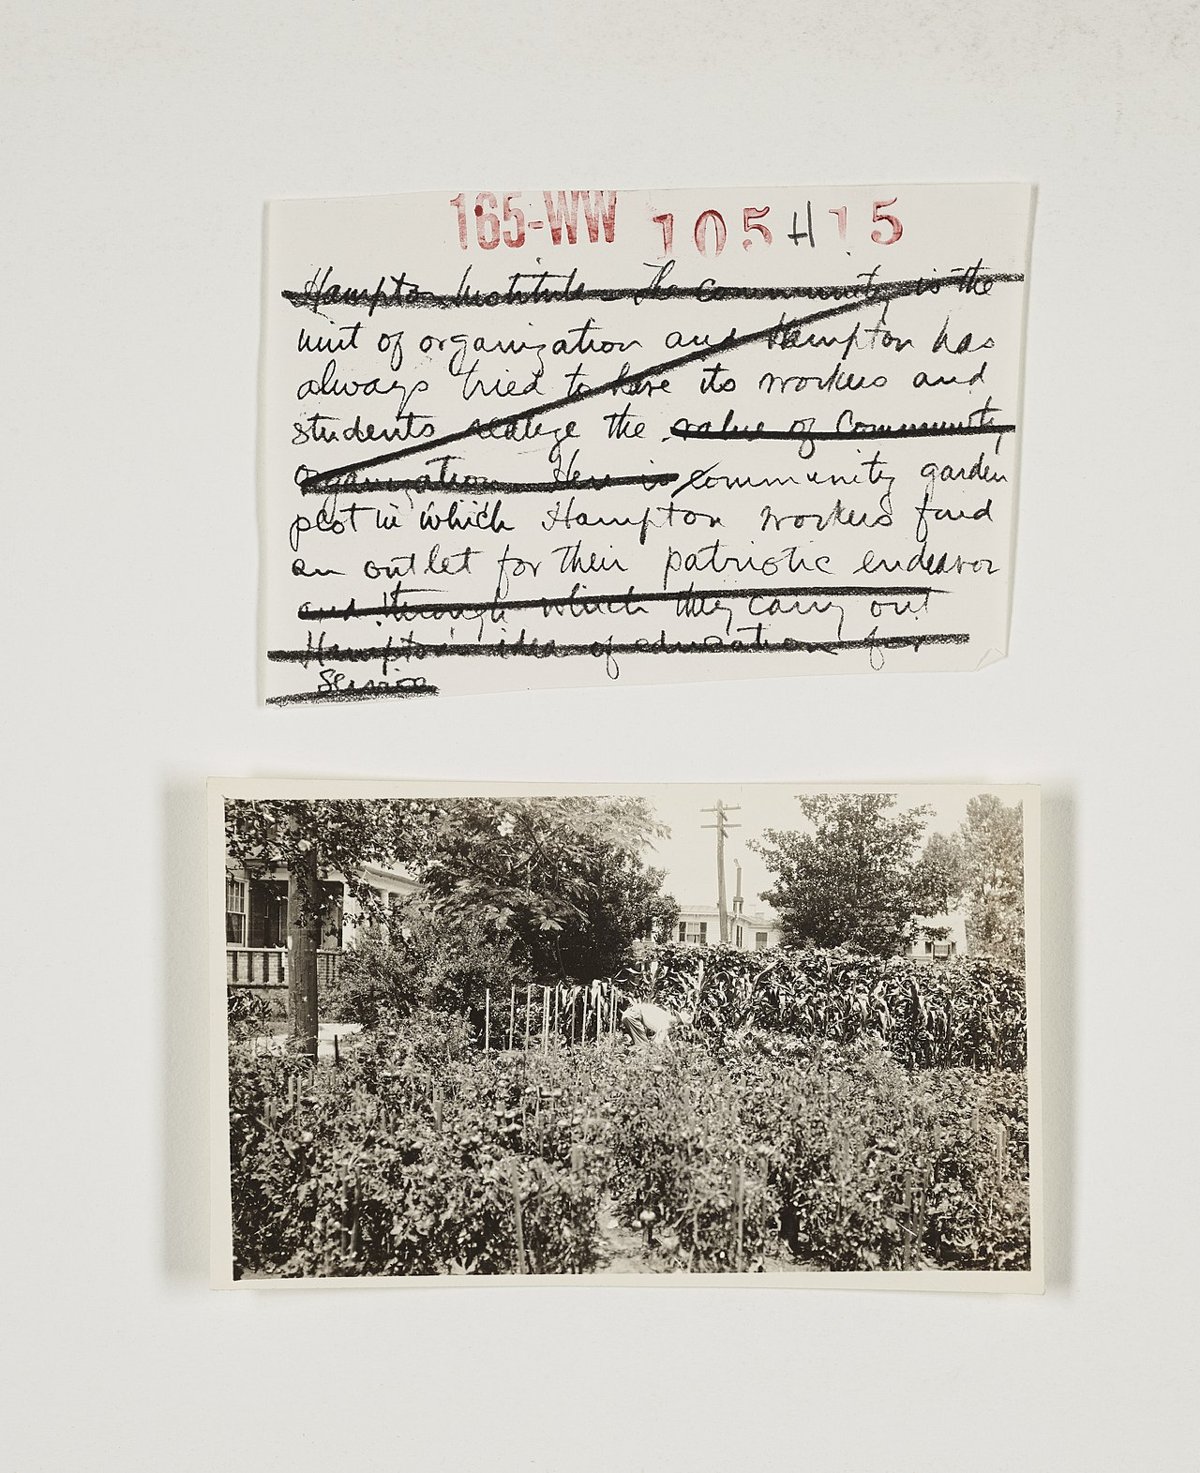 165-WW 105 H 15
Hampton Institute - The community is the
unit of organization and Hampton has
always tried to have its workers and
students realize the value of Community
Organization. Here is community garden
plot in which Hampton workers find
an outlet for their patriotic endeavor
and through which they carry out
Hampton's idea of education for
Service